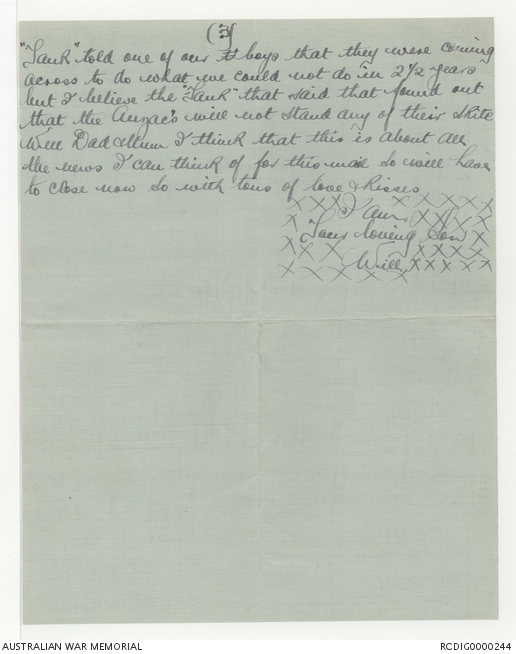 (3)
"Tank" told one of our boys that they were coming
across to do what we could not do in 2½ years
but I believe the "Tank" that said that found out
that the Anzac's will not stand any of their skite
Well Dad & Mum I think that this is about all
the news I can think of for this mail so will have
to close now so with tons of love & kisses
I am
Your loving Son
Will
AUSTRALIAN WAR MEMORIAL
RCDIG0000244